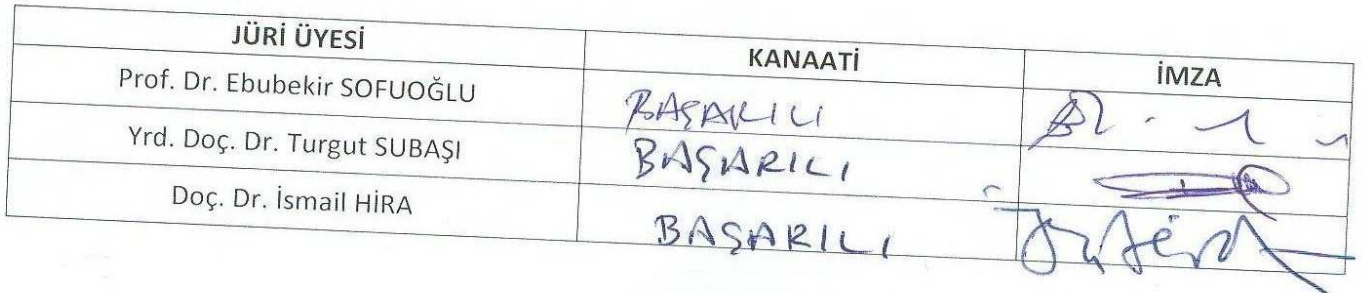 JÜRİ ÜYESİ KANAATİ İMZA
Prof. Dr. Ebubekir SOFUOĞLU BAŞARILI
Yrd. Doç. Dr. Turgut SUBAŞI BAŞARILI
Doç. Dr. İsmail HİRA BAŞARILI